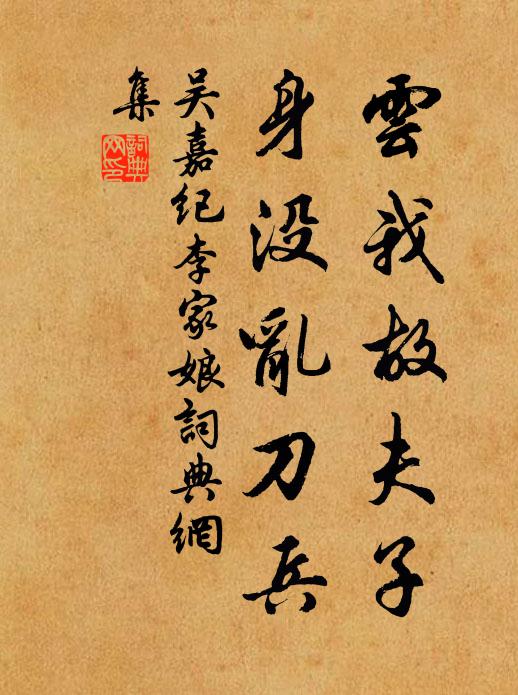 雲我故夫子
身没亂刀兵
吴嘉纪李家娘詞典網
集
詞典
网印